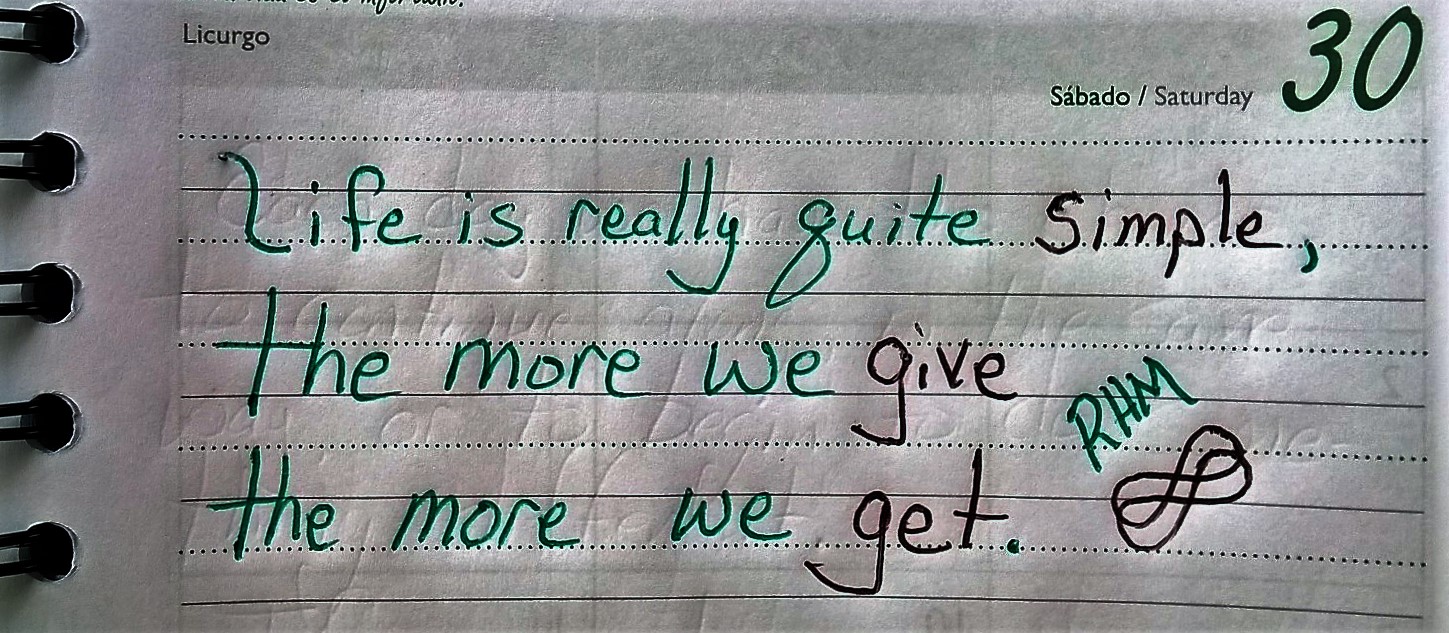 Licurgo
Sábado / Saturday 30
Life is really quite simple,
the more we give
the more we get.
RHM